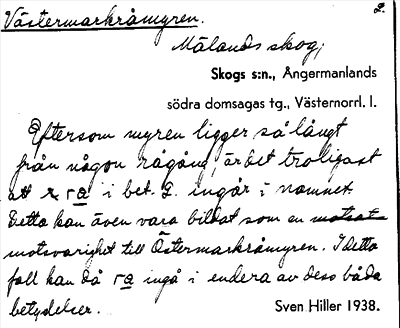 Västermarkråmyren. 2.
Mälands skog,
Skogs s:n., Ångermanlands
södra domsagas tg., Västernorrl. l.
Eftersom myren ligger så långt
från någon rågång, är det troligast
att rå i bet. 2. ingår i namnet.
Detta kan även vara bildat som en motsat
motsvarighet till Östermarkråmyren. I detta
fall kan då rå ingå i endera av dess båda
betydelser. Sven Hiller 1938.